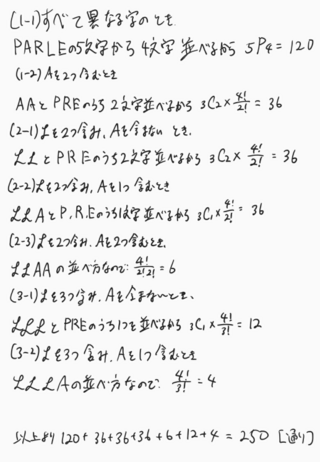 (1-1)すべて異なる字のとき
PARLEの5文字から4文字並べるから 5P4 = 120
(1-2) Aを2つ含むとき
AAとPREのうち2文字並べるから 3C2 × 4!/2! = 36
(2-1) Lを2つ含み、Aを含まないとき、
LLとPREのうち2文字並べるから 3C2 × 4!/2! = 36
(2-2) Lを2つ含み、Aを1つ含むとき
LLAとP,R,Eのうち1文字並べるから 3C1 × 4!/2! = 36
(2-3) Lを2つ含み、Aを2つ含むとき、
LLAAの並べ方なので 4!/2!2! = 6
(3-1) Lを3つ含み、Aを含まないとき、
LLLとPREのうち1つを並べるから 3C1 × 4!/3! = 12
(3-2) Lを3つ含み、Aを1つ含むとき
LLLAの並べ方なので 4!/3! = 4
以上より 120+36+36+36+6+12+4 = 250 [通り]